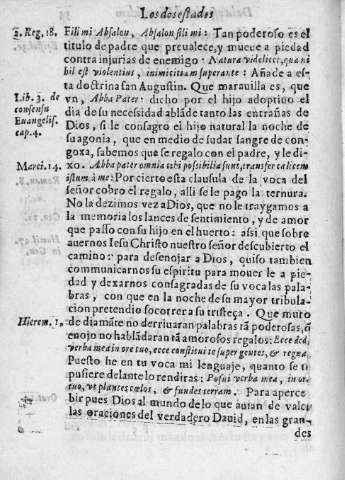 Los dos estados
2. Reg. 18.
Fili mi Absalon, Absalon fili mi: Tan poderoso es el
titulo de padre que preualece, y mueue a piedad
contra injurias de enemigo. Natura videlicet, qua ni
hil est violentius, inimicitiam superante: Añade a es-
ta doctrina san Augustin. Que marauilla es, que
Lib. 3. de
consensu
Euangelis.
cap. 4.
vn, Abba Pater: dicho por el hijo adoptiuo el
dia de su necesidad abláde tanto las entrañas de
Dios, si le consagrò el hijo natural la noche de
su agonia, que en medio de sudar sangre de con-
goxa, sabemos que se regalo con el padre, y le di-
Marci. 14.
xo. Abba pater omnia tibi possibilia sunt, transfer calicem
istum à me: Por cierto esta clausula de la voca del
señor cobro el regalo, alli se le pago la ternura.
No la dezimos vez a Dios, que no le traygamos a
la memoria los lances de sentimiento, y de amor
que passo con su hijo en el huerto: assi que sobre
auernos Iesu Christo nuestro señor descubierto el
camino: para desenojar a Dios, quiso tambien
comunicarnos su espiritu para mouer le a pie-
dad y dexarnos consagradas de su voca las pala-
bras, con que en la noche de su mayor tribula-
cion pretendio socorrer a su tristeça. Que muro
Hierem. 1.
de diamãte no derriuaran palabras rã poderosas, ò
enojo no habládaran tã amorosos regalos: Ecce dedi
verba mea in ore tuo, ecce constitui te super gentes, & regna.
Puesto he en tu voca mi lenguaje, quanto se ti
pusiere delante lo rendiras: Posui verba mea, in ore
tuo, vt plantes cælos, & fundes terram. Para aperce
bir pues Dios al mundo de lo que auian de valer
las oraciones del verdadero Dauid, en las gran-
des